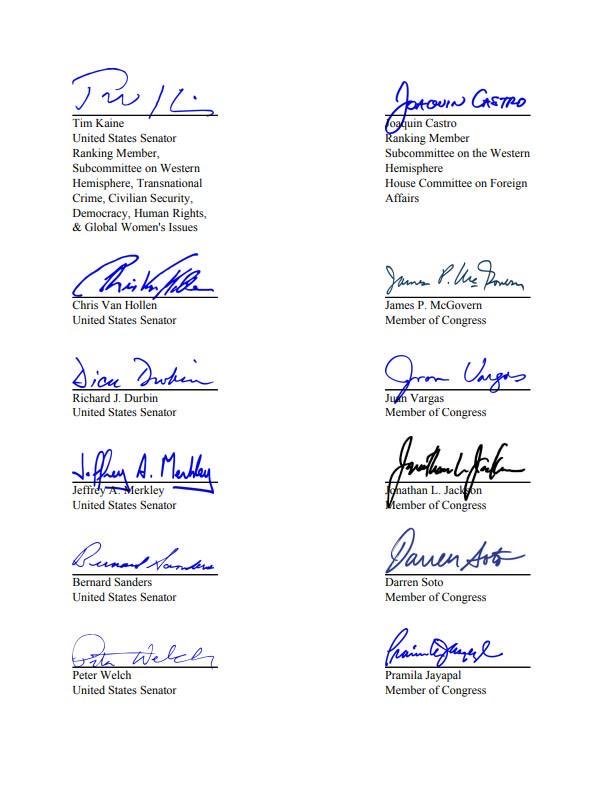 Tim Kaine
Tim Kaine
United States Senator
Ranking Member,
Subcommittee on Western
Hemisphere, Transnational
Crime, Civilian Security,
Democracy, Human Rights,
& Global Women's Issues
JOAQUIN CASTRO
Joaquin Castro
Ranking Member
Subcommittee on the Western
Hemisphere
House Committee on Foreign
Affairs
Chris Van Hollen
Chris Van Hollen
United States Senator
James P. McGovern
James P. McGovern
Member of Congress
Dick Durbin
Richard J. Durbin
United States Senator
Juan Vargas
Juan Vargas
Member of Congress
Jeffrey A. Merkley
Jeffrey A. Merkley
United States Senator
Jonathan L. Jackson
Jonathan L. Jackson
Member of Congress
Bernard Sanders
Bernard Sanders
United States Senator
Darren Soto
Darren Soto
Member of Congress
Peter Welch
Peter Welch
United States Senator
Pramila Jayapal
Pramila Jayapal
Member of Congress